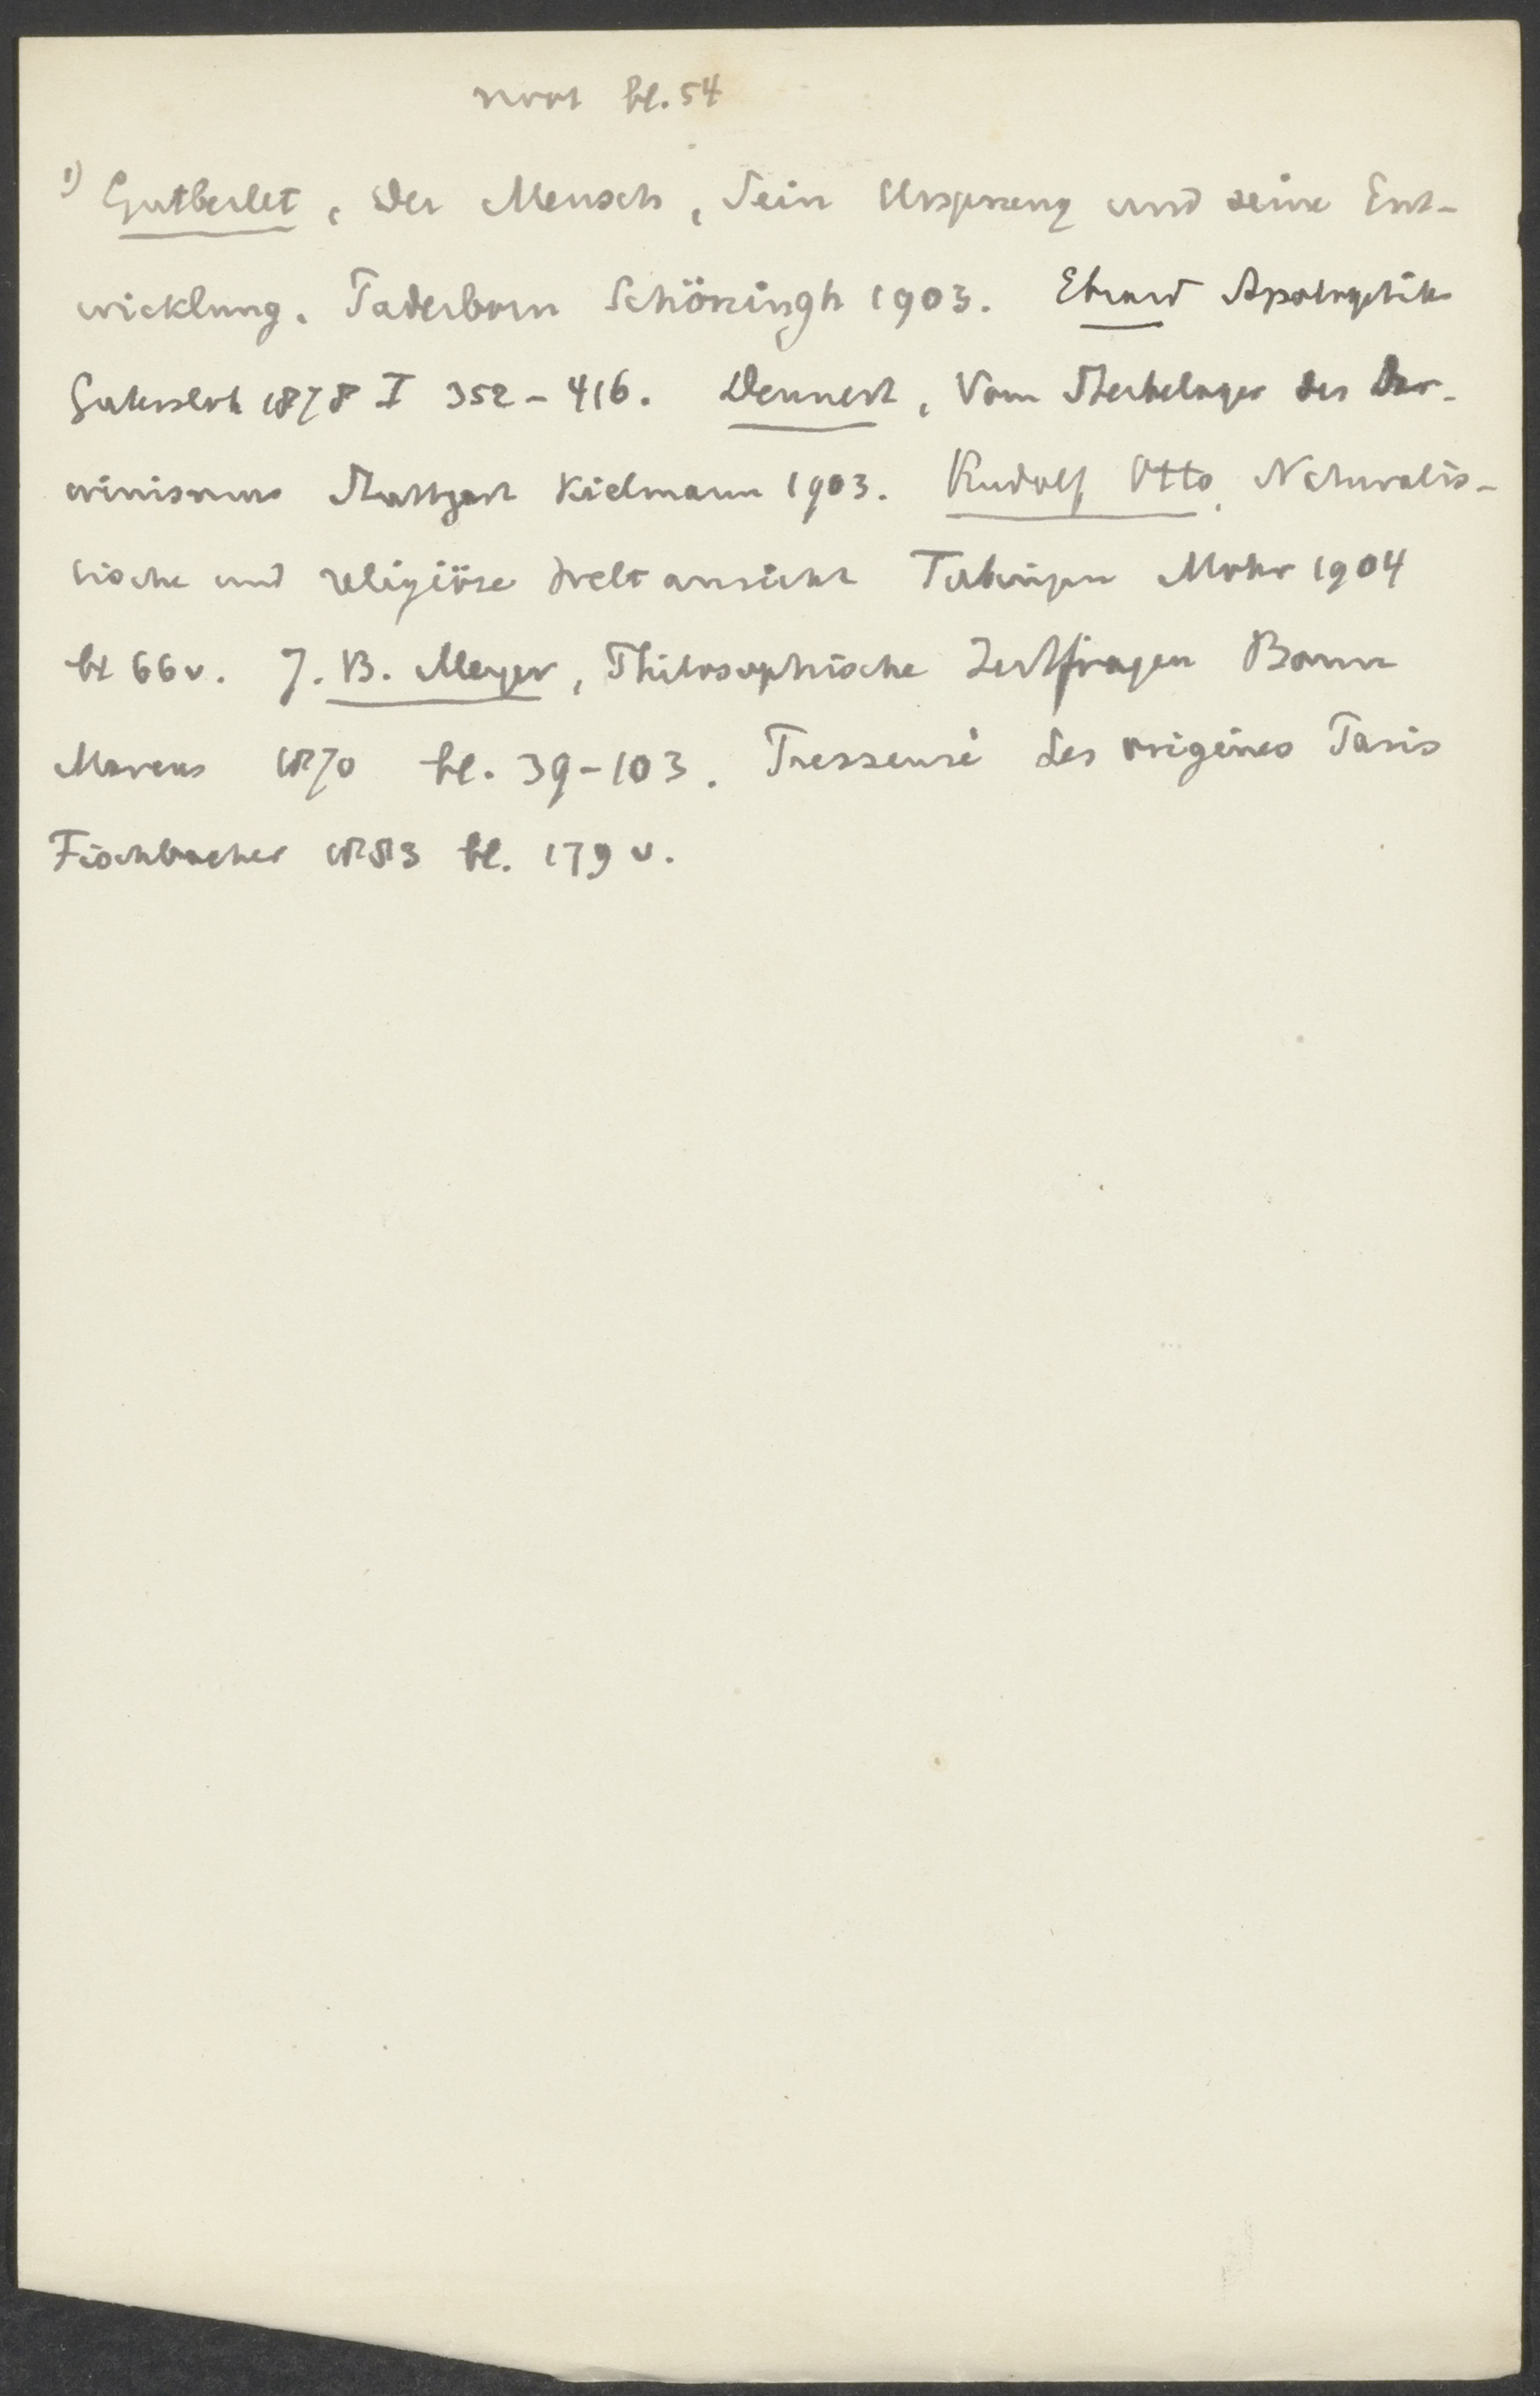 noot bl. 54
1) Gutberlet, Der Mensch, Sein Ursprung und seine Ent-
wicklung. Paderborn Schöningh 1903. Ebrard Apologetik
Gütersloh 1878 I 352-416. Dennert, Vom Sterbelager des Dar-
winismus Stuttgart Kielmann 1903. Rudolf Otto, Naturalis-
tische und religiöse Weltansicht Tubingen Mohr 1904
bl 66v. J. B. Meyer, Philosophische Zeitfragen Bonn
Marcus 1870 bl. 39-103. Pressensé Les origines Paris
Fischbacher 1883 bl. 179 v.